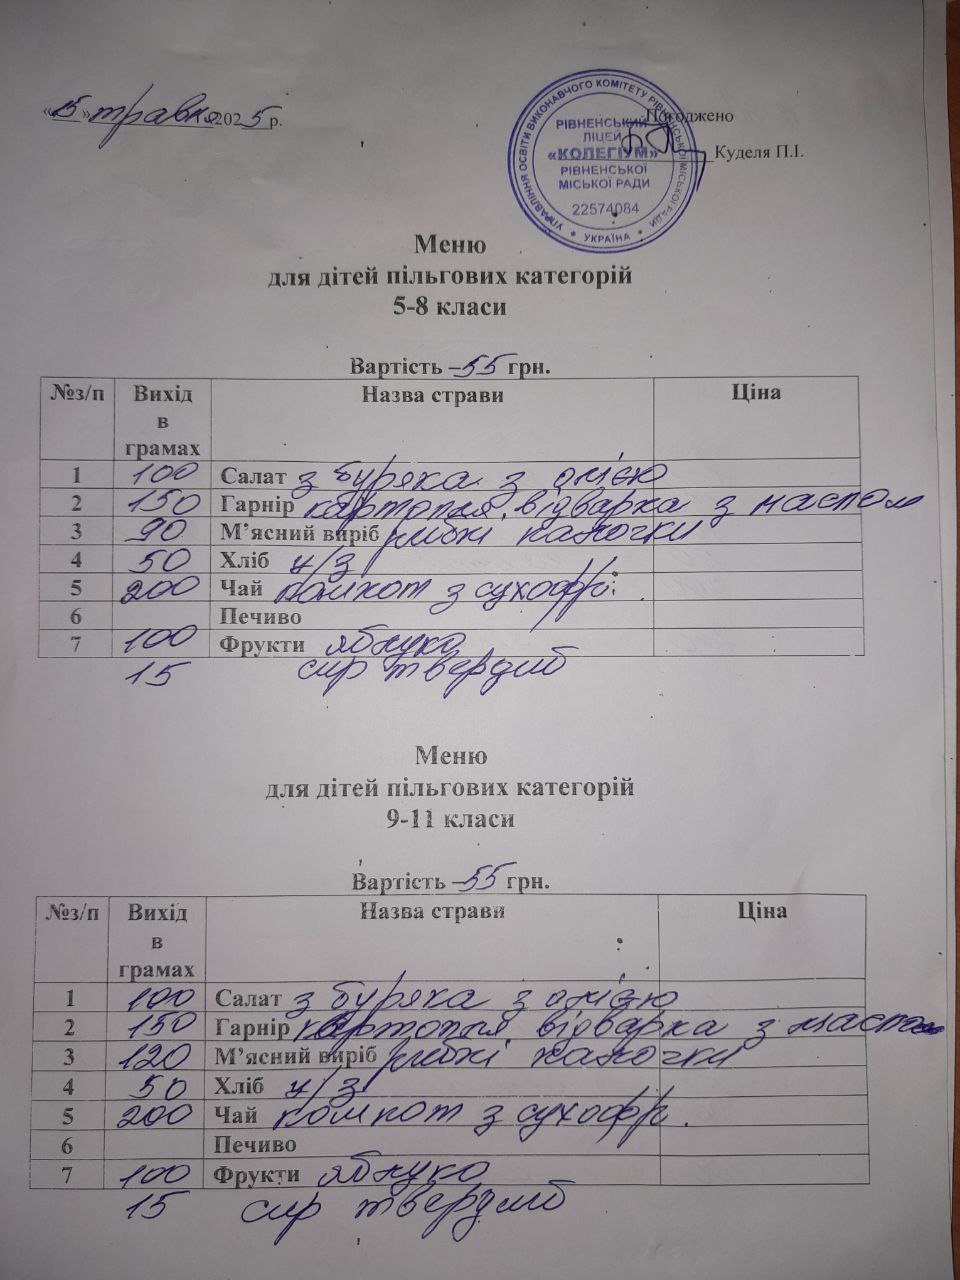 «15» травня 2025 р.
Погоджено
Куделя П.І.
УПРАВЛІННЯ ОСВІТИ ВИКОНАВЧОГО КОМІТЕТУ РІВНЕНСЬКОЇ МІСЬКОЇ РАДИ
* УКРАЇНА *
РІВНЕНСЬКИЙ
ЛІЦЕЙ
«КОЛЕГІУМ»
РІВНЕНСЬКОЇ
МІСЬКОЇ РАДИ
22574084
Меню
для дітей пільгових категорій
5-8 класи
Вартість – 55 грн.
№з/п Вихід в грамах Назва страви Ціна
1 100 Салат з буряка з олією
2 150 Гарнір картопля відварка з маслом
3 90 М’ясний виріб рибні палочки
4 50 Хліб ц/з
5 200 Чай компот з сухофр.
6 Печиво
7 100 Фрукти яблуко
15 сир твердий
Меню
для дітей пільгових категорій
9-11 класи
Вартість – 55 грн.
№з/п Вихід в грамах Назва страви Ціна
1 100 Салат з буряка з олією
2 150 Гарнір картопля відварка з маслом
3 120 М’ясний виріб рибні палочки
4 50 Хліб ц/з
5 200 Чай компот з сухофр.
6 Печиво
7 100 Фрукти яблуко
15 сир твердий